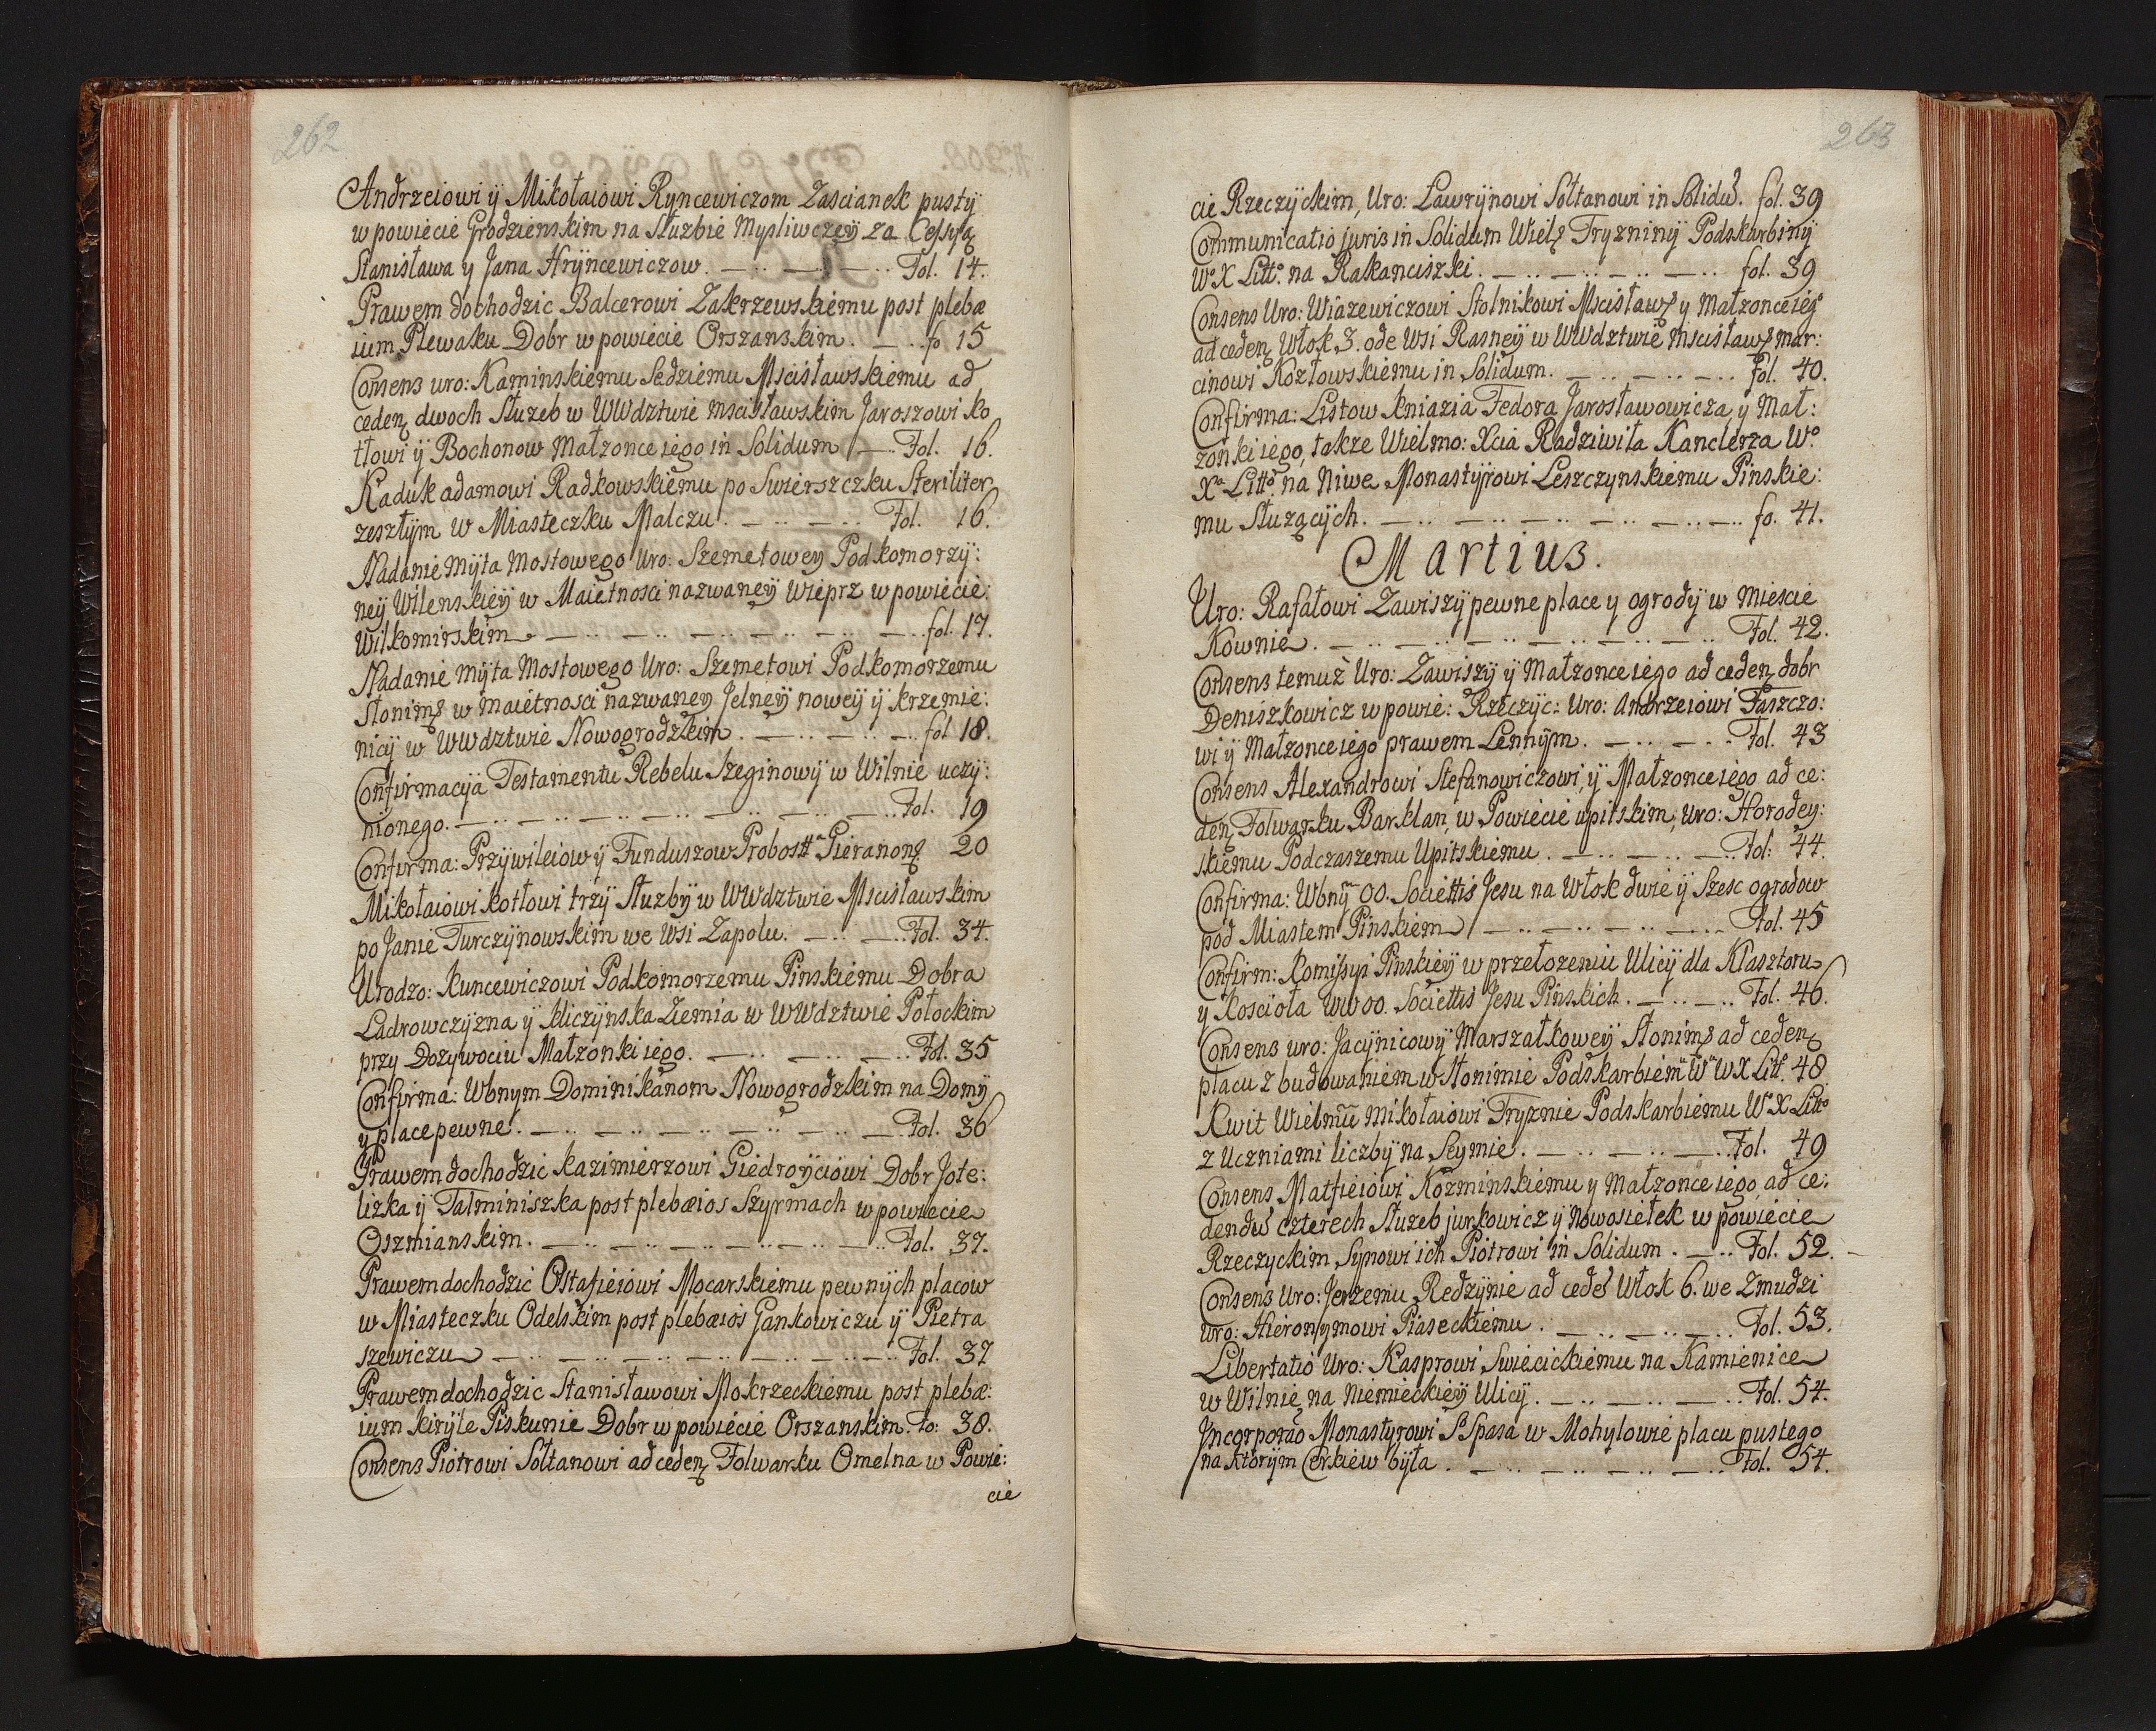 262
Andrzeiowi ÿ Mikołaiowi Ryncewiczom Zascianek pustÿ
w powiecie Grodzienskim na Służbie Mysliwczeÿ za Cessyą
Stanisława y Jana Hryncewiczow. Fol. 14.
Prawem dochodzic Balcerowi Zakrzewskiemu post plebæ
ium Plewaku Dobr w powiecie Orszanskim. fo 15
Consens uro: Kaminskiemu Sedziemu Mscisławskiemu ad
ceden dwoch Służeb w WWdztwie mscisławskim Jaroszowi Ko
tłowi ÿ Bochonow Małzonce iego in Solidum Fol. 16.
Kaduk adamowi Radkowskiemu po Swierszczku Steriliter
zeszłÿm w Miasteczku Malczu. Fol. 16.
Nadanie Mÿta Mostowego Uro: Szemetowey Podkomorzÿ:
neÿ Wilenskieÿ w Maietnosci nazwaneÿ Wieprz w powiecie
Wilkomirskim. fol. 17.
Nadanie Mÿta Mostowego Uro: Szemetowi Podkomorzemu
Słonim w maietnosci nazwaney Jelneÿ noweÿ ÿ krzemie:
nicÿ w WWdztwie Nowogrodzkim. fol 18.
Confirmacÿa Testamentu Rebelu Szeginowÿ w Wilnie uczÿ:
nionego. Fol. 19
Confirma: Przÿwileiow ÿ Funduszow Probostª Pieranon 20
Mikołaiowi kotłowi trzÿ Służbÿ w WWdztwie Mscisławskim
po Janie Turczÿnowskim we Wsi Zapolu. Fol. 34.
Urodzo: Kuncewiczowi Podkomorzemu Pinskiemu Dobra
Ladrowczÿzna ÿ kliczÿnska Ziemia w WWdztwie Połockim
przy Dozywociu Małzonki iego. Fol. 35
Confirma: Wbnym Dominikanom Nowogrodzkim na Domÿ
y place pewne. Fol. 36
Prawem dochodzic kazimierzowi Giedroÿciowi Dobr Jote:
liszka ÿ Talminiszka post plebæios Szyrmach w powiecie
Oszmianskim. Fol. 37.
Prawem dochodzic Ostafieiowi Mocarskiemu pewnÿch placow
w Miasteczku Odelskim post plebæios Jankowiczu ÿ Pietra
szewiczu Fol. 37
Prawem dochodzic Stanisławowi Mokrzeckiemu post plebæ:
ium kirÿle Piskunie Dobr w powiecie Orszanskim. fo: 38.
Consens Piotrowi Sołtanowi ad ceden Folwarku Omelna w Powie:
cie
263
cie Rzeczÿckim, Uro: Lawrÿnowi Sołtanowi in Solidu. fol. 39
Communicatio juris in Solidum Wiel Tryzninÿ Podskarbinÿ
Wº X Littº na Rakanciszki. fol. 39
Consens Uro: Wiazewiczowi Stolnikowi Mscisław y Małzonce ieg
ad ceden Włok 3. ode Wsi Rasneÿ w WWdztwie mscisław mar:
cinowi Kozłowskiemu in Solidum. fol. 40.
Confirma: Listow kniazia Fedora Jarosławowicza y Mał:
zonki iego, takze Wielmo: Xcia Radziwiła Kanclerza Wº
Xª Littº na Niwe Monastÿrowi Leszczynskiemu Pinskie:
mu Słuzącÿch. fo. 41.
Martius.
Uro: Rafałowi Zawiszÿ pewne place y ogrodÿ w Miescie
Kownie. Fol. 42.
Consens temuz Uro: Zawiszÿ ÿ Małzonce iego ad ceden dobr
Deniszkowicz w powie: Rzeczÿc: Uro: Andrzeiowi Faszczo:
wi ÿ Małzonce iego prawem Lennÿm. Fol. 43
Consens Alexandrowi Stefanowiczowi, ÿ Małzonce iego ad ce:
den Folwarku Barklan, w Powiecie upitskim, Uro: Horodey:
skiemu Podczaszemu Upitskiemu. Fol: 44.
Confirma: Wbnÿ OO. Societtis Jesu na Włok dwie ÿ Szesc ogrodow
pod Miastem Pinskiem Fol. 45
Confirm: Komissyi Pinskieÿ w przełozeniu Ulicÿ dla Klasztoru
y Koscioła WWOO. Societtis Jesu Pinskich. Fol. 46.
Consens uro: Jacÿnicowÿ Marszałkoweÿ Słonim ad ceden
placu z budowaniem w Słonimie Podskarbiem W WX Litt. 48
Kwit Wielmu Mikołaiowi Tryznie Podskarbiemu Wº X Littº
z Uczniami liczbÿ na Seymie. Fol. 49
Consens Matfieiowi Kozminskiemu y Małzonce iego ad ce:
dendu czterech Służeb jurkowicz ÿ Nowosiełek w powiecie
Rzeczyckim Synowi ich Piotrowi in Solidum. Fol. 52.
Consens Uro: Jerzemu Redzÿnie ad cede Włok 6. we Zmudzi
uro: Hieronymowi Piaseckiemu. Fol. 53.
Libertatio Uro: Kasprowi Swiecickiemu na Kamienice
w Wilnie na Niemieckieÿ Ulicÿ. Fol. 54.
Incorporao Monastyrowi S. Spasa w Mohylowie placu pustego
na ktorÿm Cerkiew bÿła. Fol. 54.